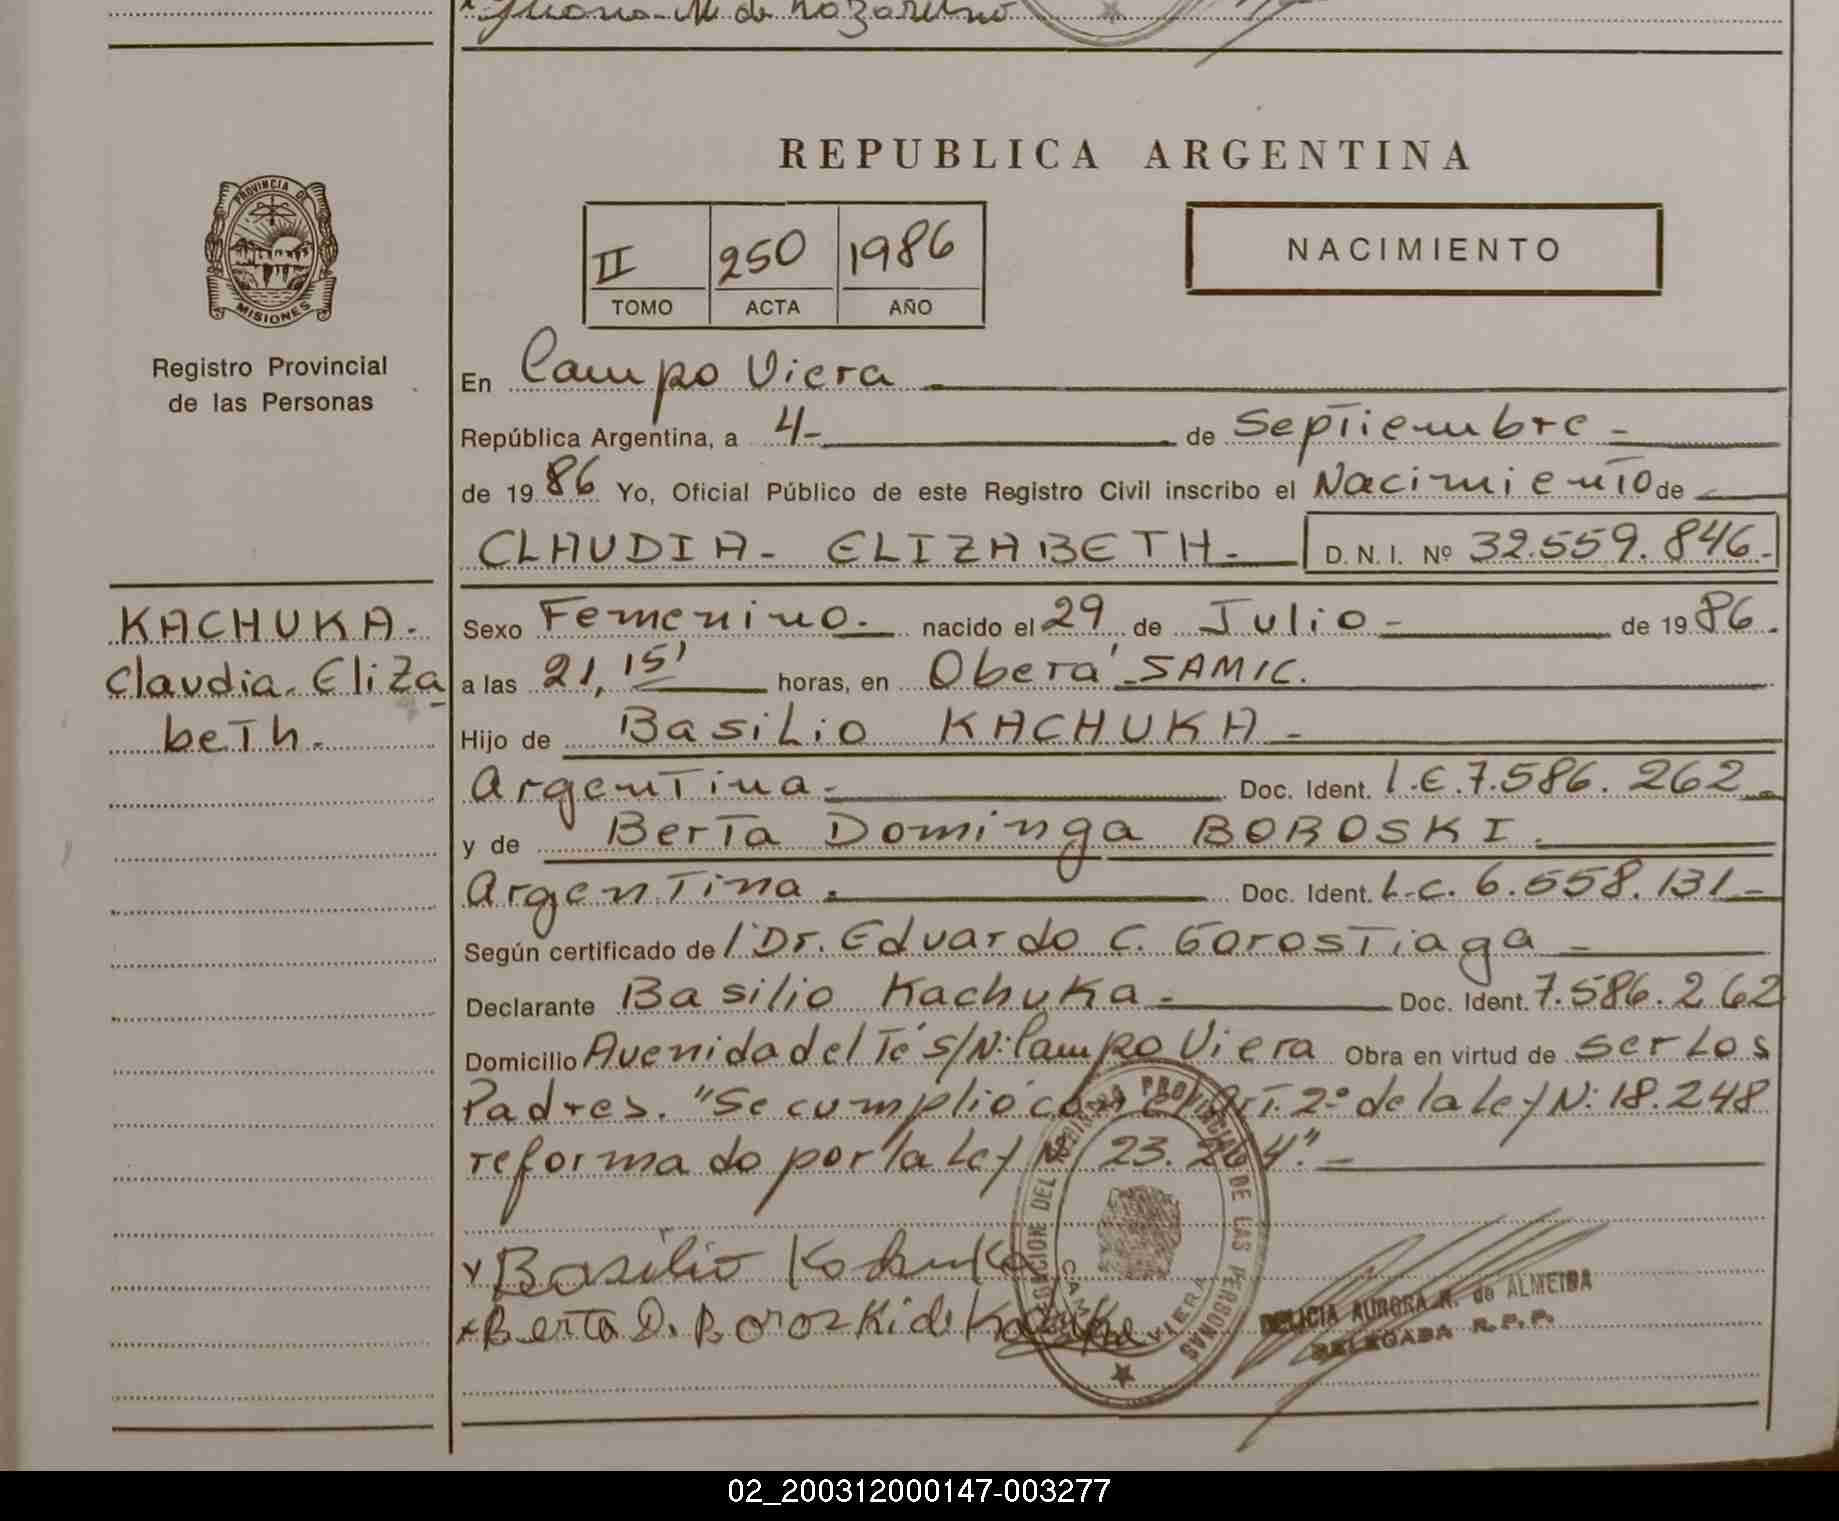 Juana M. de Nazareno
REPUBLICA ARGENTINA
PROVINCIA DE
MISIONES
Registro Provincial
de las Personas
II 250 1986
TOMO ACTA AÑO
NACIMIENTO
En Campo Viera
República Argentina, a 4- de Septiembre -
de 19 86 Yo, Oficial Público de este Registro Civil inscribo el Nacimiento de
CLAUDIA - ELIZABETH - D. N. I. Nº 32.559.846.-
KACHUKA.
Claudia Eliza
beth.
Sexo Femenino. nacido el 29 de Julio - de 19 86.
a las 21,15' horas, en Oberá - SAMIC.
Hijo de Basilio KACHUKA -
Argentina.- Doc. Ident. L.E. 7.586.262.
y de Berta Dominga BOROSKI.
Argentina. Doc. Ident. L.C. 6.558.131-
Según certificado de l' Dr. Eduardo C. Gorostiaga -
Declarante Basilio Kachuka.- Doc. Ident. 7.586.262
Domicilio Avenida del Té S/N: Campo Viera Obra en virtud de ser Los
Padres. "Se cumplió con el Art. 2º de la Ley N: 18.248
reformado por la Ley Nº 23.264". -
x Basilio Kachuka
x Berta D. Boroski de Kachuka
DEL REGISTRO PROVINCIAL DE LAS PERSONAS
CAMPO VIERA
DELICIA AURORA R. de ALMEIDA
DELEGADA R.P.P.
02_200312000147-003277